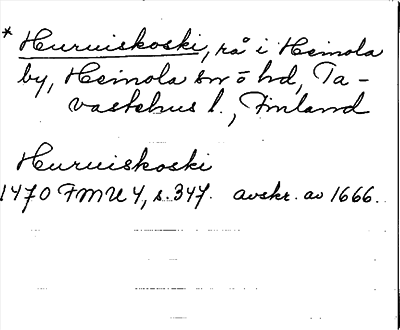 * Huruiskoski, rå i Heinola
by, Heinola sn o hd, Ta-
vastehus l., Finland
Huruiskoski
1470 FMU 4, s. 347. avskr. av 1666.